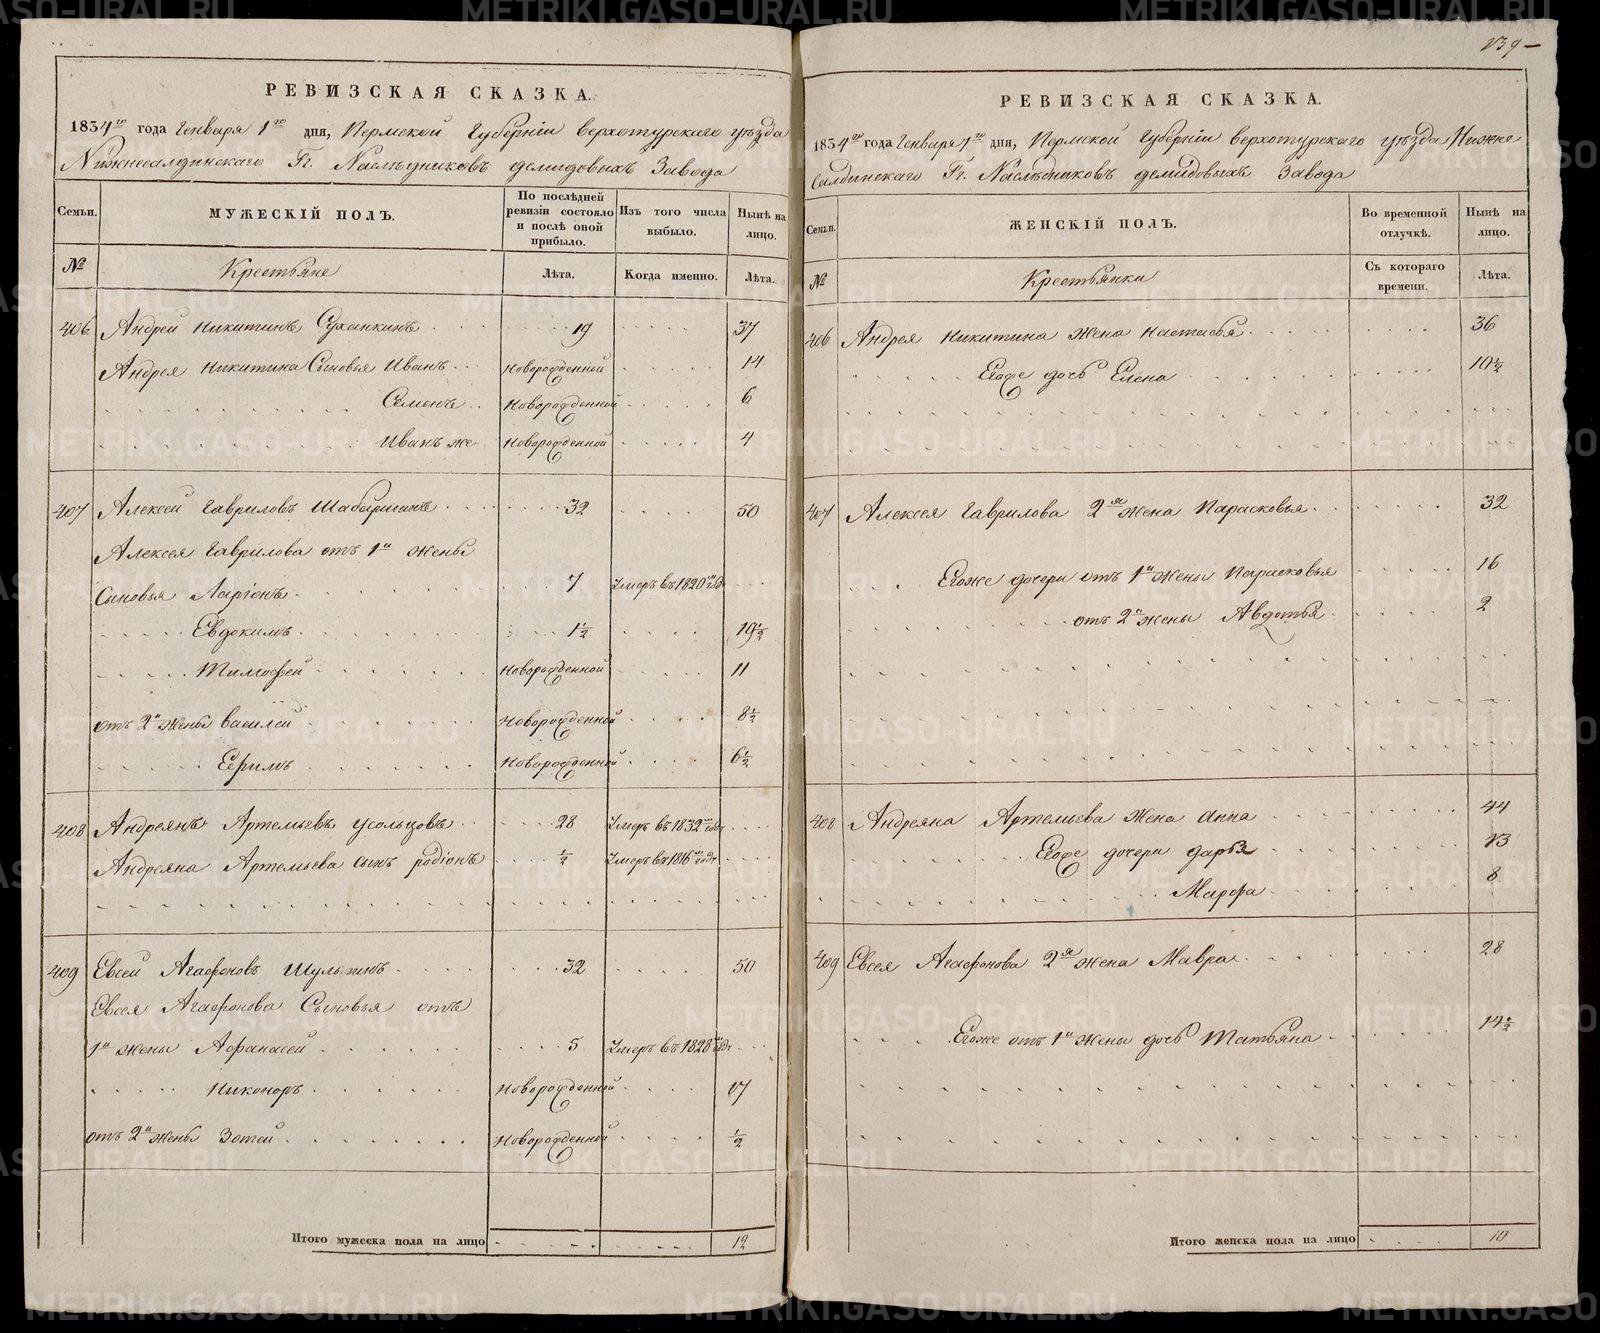 139
РЕВИЗСКАЯ СКАЗКА.
1834го года Генваря 1го дня, Пермской Губернiи верхотурскаго уѣзда
Нижнесалдинскаго Гг. Наслѣдниковъ демидовыхъ Завода
Семьи.
МУЖЕСКIЙ ПОЛЪ.
По послѣдней ревизiи состояло и послѣ оной прибыло.
Изъ того числа выбыло.
Нынѣ на лицо.
№
Крестьяне
Лѣта.
Когда именно.
Лѣта.
406 Андрей Никитинъ Суханкинъ 19 37
Андрея Никитина Сыновья Иванъ Новорожденной 14
Семенъ Новорожденной 6
Иванъ же Новорожденной 4
407 Алексей Гавриловъ 32 50
Алексея Гаврилова отъ 1й жены
Сыновья Ларiонъ 7 Умеръ въ 1820м годе
Евдокимъ 1½ 19½
Тимофей Новорожденной 11
отъ 2й жены василей Новорожденной 8½
Ефимъ Новорожденной 6½
408 Андреянъ Артемьевъ усольцовъ 28 Умеръ въ 1832м годе
Андреяна Артемьева сынъ родiонъ ½ Умеръ въ 1816м годе
409 Евсей Агафоновъ Шульгинъ 32 50
Евсея Агафонова Сыновья отъ
1й жены Афанасей 5 Умеръ въ 1828м годе
Никоноръ Новорожденной 17
отъ 2й жены Зотей Новорожденной ½
Итого мужеска пола на лицо 12
РЕВИЗСКАЯ СКАЗКА.
1834го года Генваря 1го дня, Пермской Губернiи верхотурскаго уѣзда Нижне
Салдинскаго Гг. Наслѣдниковъ демидовыхъ Завода
Семьи.
ЖЕНСКIЙ ПОЛЪ.
Во временной отлучкѣ.
Нынѣ на лицо.
№
Крестьянки
Съ котораго времени.
Лѣта.
406 Андрея Никитина жена Настасья 36
Егоже дочь Елена 10½
407 Алексея Гаврилова 2я жена Парасковья 32
Егоже дочери отъ 1й жены Парасковья 16
отъ 2й жены Авдотья 2
408 Андреяна Артемьева жена анна 44
Егоже дочери дарья 13
Марфа 8
409 Евсея Агафонова 2я жена Мавра 28
Егоже отъ 1й жены дочь Татьяна 14½
Итого женска пола на лицо 10
METRIKI.GASO-URAL.RU